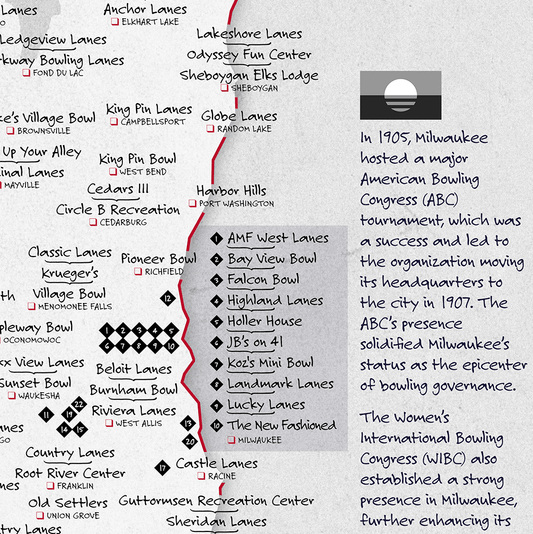 Lanes
Anchor Lanes
ELKHART LAKE
Ledgeview Lanes
Lakeshore Lanes
Odyssey Fun Center
Sheboygan Elks Lodge
SHEBOYGAN
Bowling Lanes
FOND DU LAC
Village Bowl
BROWNSVILLE
King Pin Lanes
CAMPBELLSPORT
Globe Lanes
RANDOM LAKE
Up Your Alley
MAYVILLE
King Pin Bowl
WEST BEND
Cedars III
Circle B Recreation
CEDARBURG
Harbor Hills
PORT WASHINGTON
Classic Lanes
Krueger's
Village Bowl
MENOMONEE FALLS
Pioneer Bowl
RICHFIELD
12
Bowl
OCONOMOWOC
1 2 3 4 5
6 7 8 9 10
1 AMF West Lanes
2 Bay View Bowl
3 Falcon Bowl
4 Highland Lanes
5 Holler House
6 JB's on 41
7 Koz's Mini Bowl
8 Landmark Lanes
9 Lucky Lanes
10 The New Fashioned
MILWAUKEE
View Lanes
Sunset Bowl
WAUKESHA
Beloit Lanes
Burnham Bowl
Riviera Lanes
WEST ALLIS
22
11 19
14 15
13
20
Country Lanes
Root River Center
FRANKLIN
17
Castle Lanes
RACINE
Old Settlers
UNION GROVE
Guttormsen Recreation Center
Sheridan Lanes
Lanes
In 1905, Milwaukee
hosted a major
American Bowling
Congress (ABC)
tournament, which was
a success and led to
the organization moving
its headquarters to
the city in 1907. The
ABC's presence
solidified Milwaukee's
status as the epicenter
of bowling governance.
The Women's
International Bowling
Congress (WIBC) also
established a strong
presence in Milwaukee,
further enhancing its